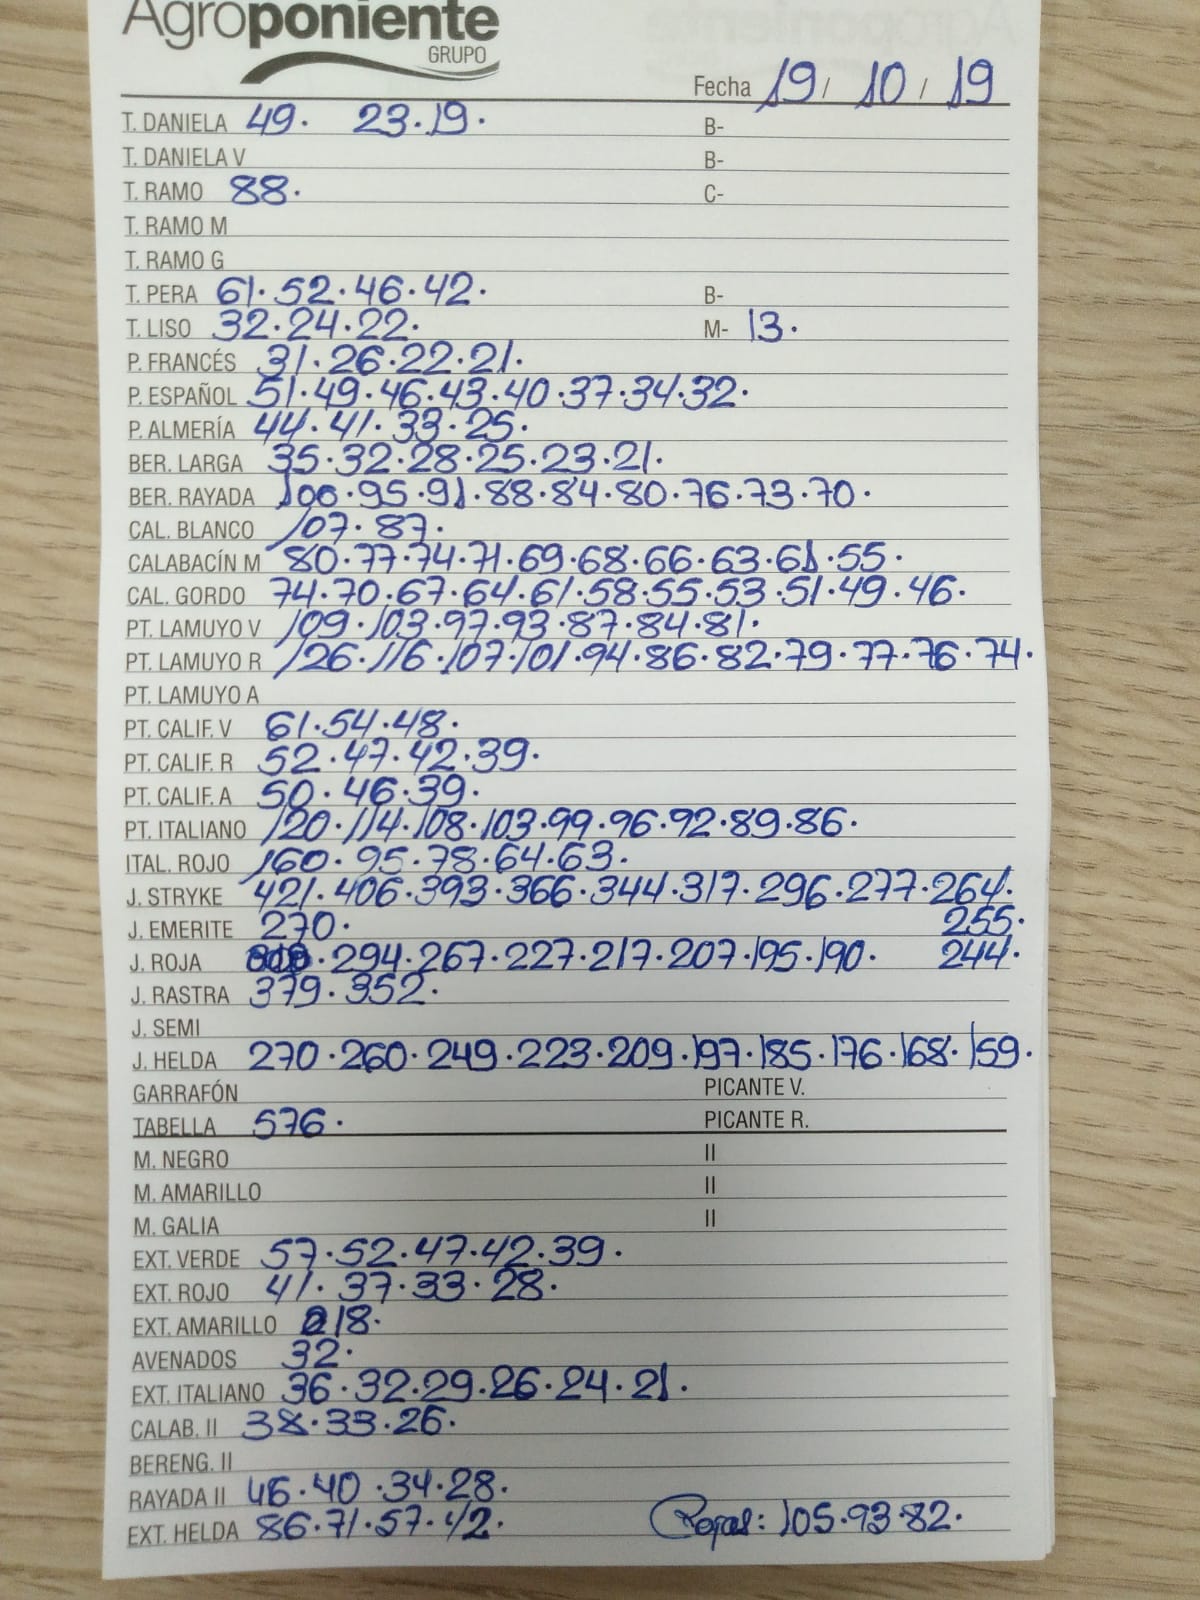 Agroponiente
GRUPO
Fecha 19 / 10 / 19
T. DANIELA 49. 23.19. B-
T. DANIELA V B-
T. RAMO 88. C-
T. RAMO M
T. RAMO G
T. PERA 61.52.46.42. B-
T. LISO 32.24.22. M- 13.
P. FRANCÉS 31.26.22.21.
P. ESPAÑOL 51.49.46.43.40.37.34.32.
P. ALMERÍA 44.41.33.25.
BER. LARGA 35.32.28.25.23.21.
BER. RAYADA 100.95.91.88.84.80.76.73.70.
CAL. BLANCO 107.87.
CALABACÍN M 80.77.74.71.69.68.66.63.61.55.
CAL. GORDO 74.70.67.64.61.58.55.53.51.49.46.
PT. LAMUYO V 109.103.97.93.87.84.81.
PT. LAMUYO R 126.116.107.101.94.86.82.79.77.76.74.
PT. LAMUYO A
PT. CALIF. V 61.54.48.
PT. CALIF. R 52.47.42.39.
PT. CALIF. A 50.46.39.
PT. ITALIANO 120.114.108.103.99.96.92.89.86.
ITAL. ROJO 160.95.78.64.63.
J. STRYKE 421.406.393.366.344.317.296.277.264.
J. EMERITE 270. 255.
J. ROJA .294.267.227.217.207.195.190. 244.
J. RASTRA 379.352.
J. SEMI
J. HELDA 270.260.249.223.209.197.185.176.168.159.
GARRAFÓN PICANTE V.
TABELLA 576. PICANTE R.
M. NEGRO II
M. AMARILLO II
M. GALIA II
EXT. VERDE 57.52.47.42.39.
EXT. ROJO 41.37.33.28.
EXT. AMARILLO 18.
AVENADOS 32.
EXT. ITALIANO 36.32.29.26.24.21.
CALAB. II 38.33.26.
BERENG. II
RAYADA II 46.40.34.28.
EXT. HELDA 86.71.57.42. Rojas: 105.93.82.